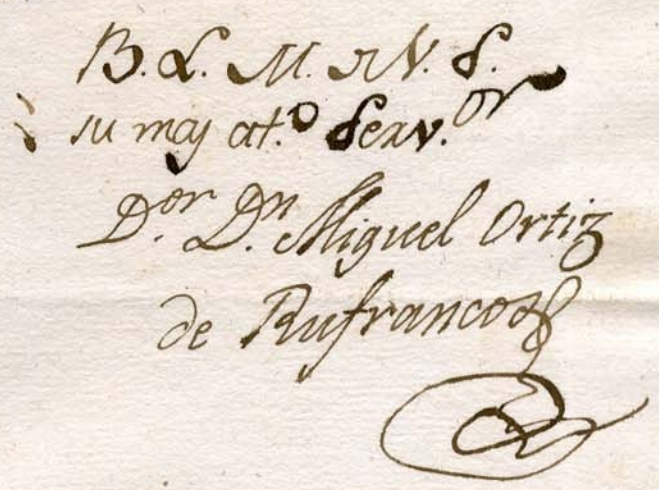 B. L. M. a V. S.
su may at.º Serv.or
D.or D.n Miguel Ortiz
de Rufrancos